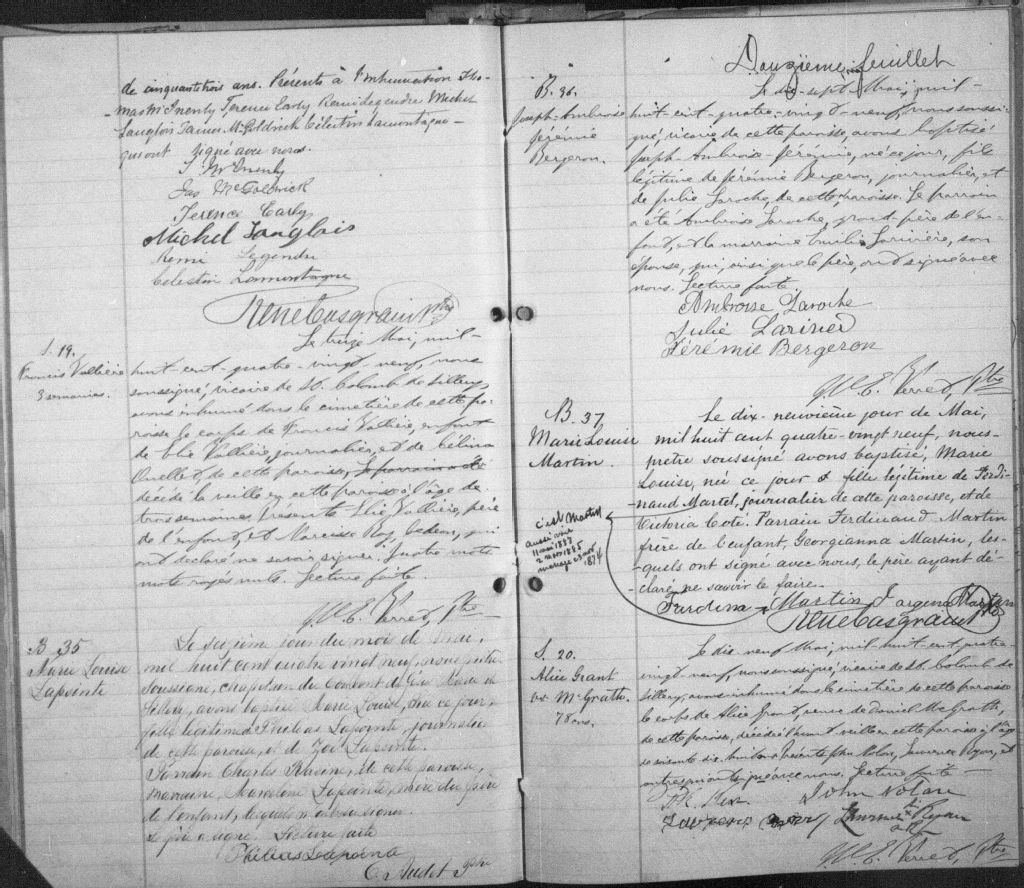 de cinquantetrois ans. Présents à l'inhumation Tho-
-mas McInenly Terence Early Remi Legendre Michel
Langlois James McGoldrick Célestin Lamontagne
qui ont signé avec nous.
T McInenly
Jas McGoldrick
Terence Early
Michel Langlois
Remi Legendre
Celestin Lamontagne
René Casgrain Ptre
S. 19.
Francis Vallière
3 semaines.
Le treize Mai, mil-
huit-cent-quatre-vingt-neuf, nous
soussigné, vicaire de St. Colomb de Sillery,
avons inhumé dans le cimetière de cette pa-
roisse le corps de Francis Vallière, enfant
de Elie Vallière, journalier, et de Célina
Ouellet, de cette paroisse,
décédé la veille en cette paroisse à l'âge de
trois semaines. Présents Elie Vallière, père
de l'enfant, et Narcisse Roy, bedeau, qui
ont déclaré ne savoir signer. Quatre mots
mots rayés nuls. Lecture faite.
Ptre
B 35
Marie Louise
Lapointe
Le jour du moi de Mai,
mil huit cent quatre vingt neuf, nous prêtre
soussigné, chapelain du Couvent de Jésus Marie de
Sillery, avons baptisé Marie Louise, née ce jour,
fille légitime de Philias Lapointe journalier
de cette paroisse, et de Zoé Lapointe.
Parrain Charles Ravine, de cette paroisse,
marraine, Marceline Lapointe, mère du père
de l'enfant, lesquels n'ont su signer.
Le père a signé. Lecture faite
Philias Lapointe
C. Audet Ptre
Douzième feuillet
B. 36.
Joseph-Ambroise
Jérémie
Bergeron.
Le dix-sept Mai, mil-
huit-cent-quatre-vingt-neuf, nous soussi-
gné, vicaire de cette paroisse, avons baptisé
Joseph-Ambroise-Jérémie, né ce jour, fils
légitime de Jérémie Bergeron, journalier, et
de Julie Laroche, de cette paroisse. Le parrain
a été Ambroise Laroche, grand-père de l'en-
fant, et la marraine Emilie Larivière, son
épouse, qui, ainsi que le père, ont signé avec
nous. Lecture faite.
Ambroise Laroche
Julie Larivier
Jérémie Bergeron
Ptre
B. 37
Marie Louise
Martin.
Le dix-neuvième jour de Mai,
mil huit cent quatre-vingt neuf, nous-
prêtre soussigné avons baptisé, Marie
Louise, née ce jour & fille légitime de Ferdi-
-naud Martel, journalier de cette paroisse, et de
Victoria Coté. Parrain Ferdinand Martin
frère de l'enfant, Georgianna Martin, les-
-quels ont signé avec nous, le père ayant dé-
-claré ne savoir le faire.
c'est Martel
aussi voir
11 mai 1887
2 nov 1885
mariage 1874
Fardinn Martin Jargena Martin
René Casgrain Ptre
S. 20.
Alice Grant
ve McGrath.
78 ans.
Le dix-neuf Mai, mil-huit-cent-quatre-
vingt-neuf, nous soussigné, vicaire de St. Colomb de
Sillery, avons inhumé dans le cimetière de cette paroisse
le corps de Alice Grant, veuve de Daniel McGrath,
de cette paroisse, décédée l'avant veille en cette paroisse à l'âge
de soixante-dix-huit ans. Présents John Nolan, Lawrence Ryan, et
Lecture faite
John Nolan
Lawrence Ryan
Ptre